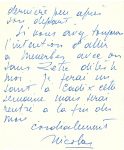 dernière peu après
son départ.
Si vous avez toujours
l'intention d'aller
à avec ou
sans dites le
moi. Je ferai un
saut à Cadix cette
semaine mais serai
rentré à la fin du
mois
cordialement
Nicolas